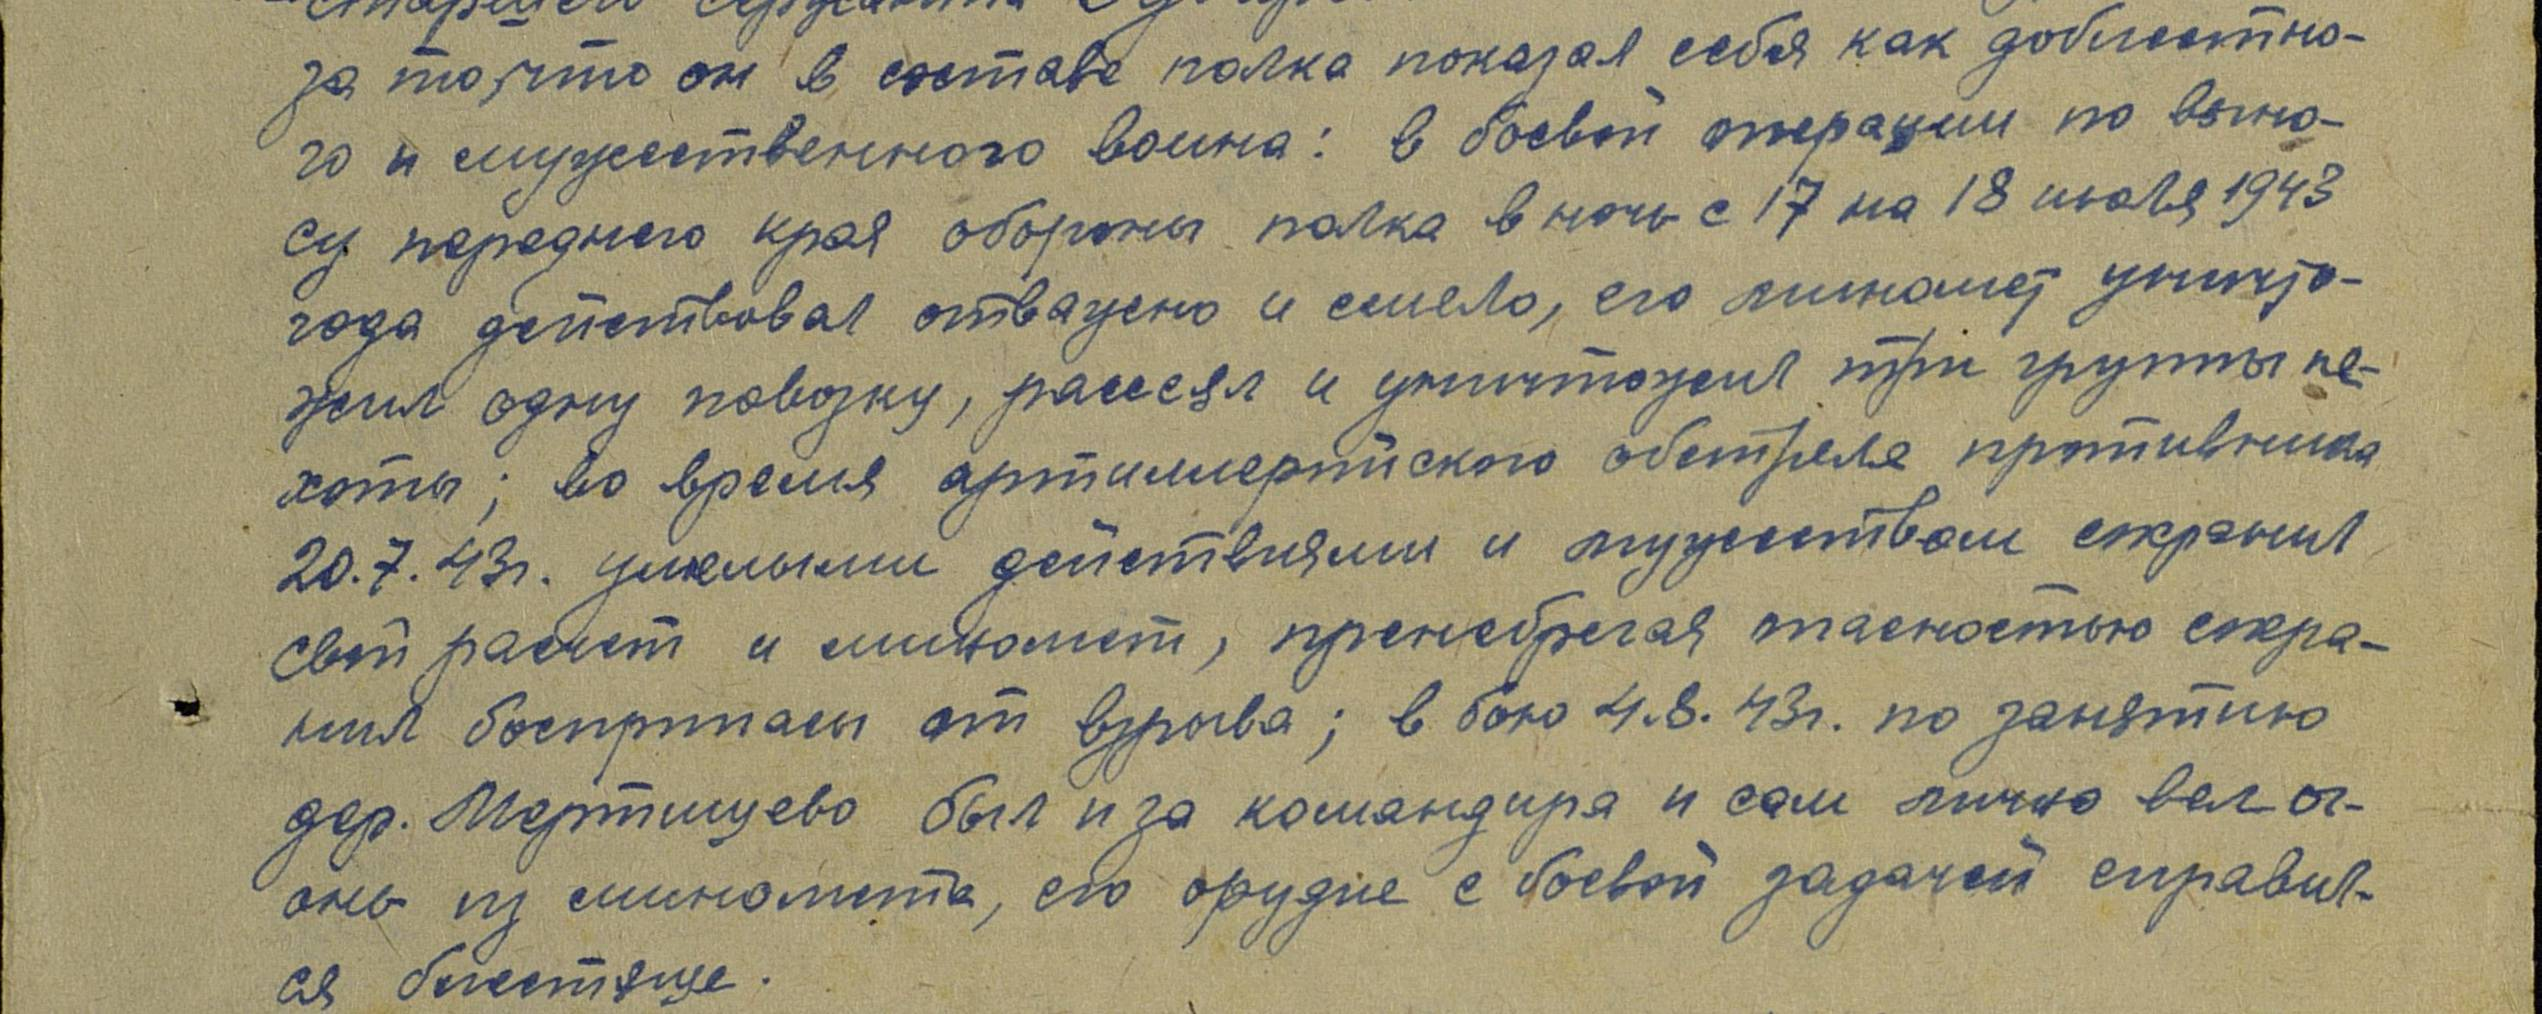 старшего сержанта
за то, что он в составе полка показал себя как доблестно-
го и мужественного воина: в боевой операции по выно-
су переднего края обороны полка в ночь с 17 на 18 июля 1943
года действовал отважно и смело, его миномет уничто-
жил одну повозку, рассеял и уничтожил три группы пе-
хоты; во время артиллерийского обстрела противника
20.7.43г. умелыми действиями и мужеством сохранил
свой расчет и миномет, пренебрегая опасностью сохра-
нил боеприпасы от взрыва; в бою 4.8.43г. по занятию
дер. Мартищево был и за командира и сам лично вел ог-
онь из миномета, его орудие с боевой задачей справил-
ся блестяще.